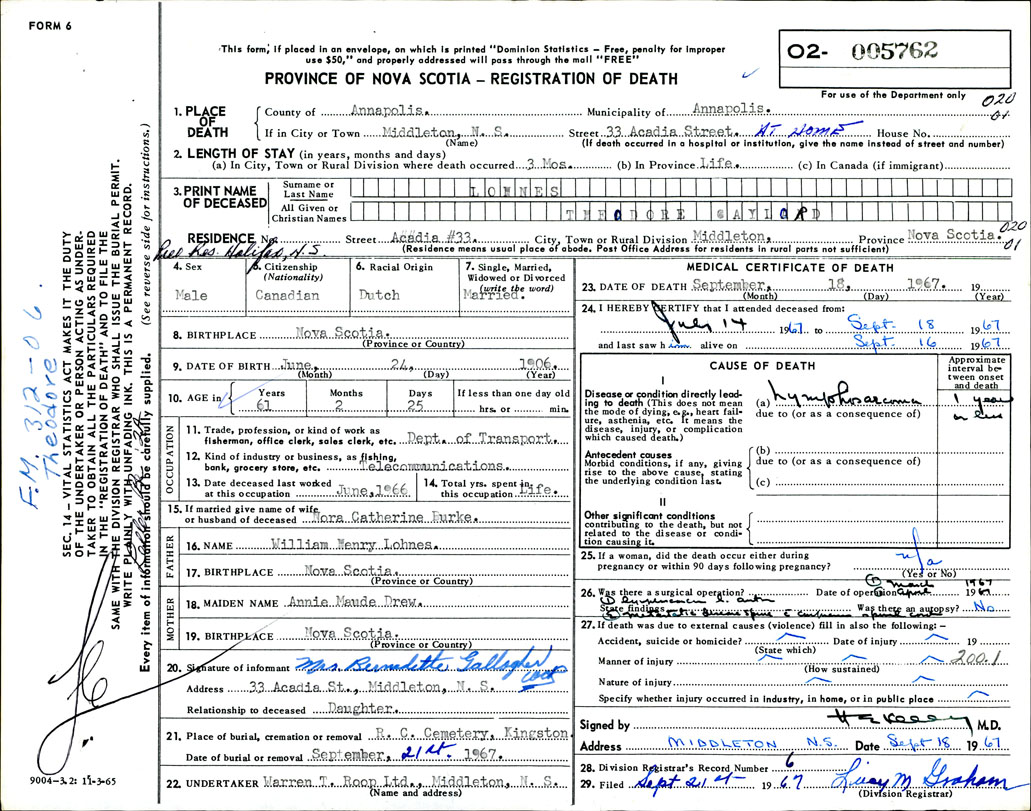 FORM 6
This form, if placed in an envelope, on which is printed "Dominion Statistics — Free, penalty for improper
use $50," and properly addressed will pass through the mail "FREE"
02- 005762
PROVINCE OF NOVA SCOTIA — REGISTRATION OF DEATH
For use of the Department only
020
01
1. PLACE OF DEATH
County of Annapolis. Municipality of Annapolis.
If in City or Town Middleton, N. S. Street 33 Acadia Street. AT HOME House No.
(Name) (If death occurred in a hospital or institution, give the name instead of street and number)
2. LENGTH OF STAY (in years, months and days)
(a) In City, Town or Rural Division where death occurred 3 Mos. (b) In Province Life. (c) In Canada (if immigrant)
3. PRINT NAME OF DECEASED
Surname or Last Name LOHNES
All Given or Christian Names THEODORE GAYLORD
RESIDENCE No. Street Acadia #33. City, Town or Rural Division Middleton, Province Nova Scotia.
020
01
(Residence means usual place of abode. Post Office Address for residents in rural parts not sufficient)
Res. Halifax, N.S.
4. Sex Male
5. Citizenship (Nationality) Canadian
6. Racial Origin Dutch
7. Single, Married, Widowed or Divorced (write the word) Married.
8. BIRTHPLACE Nova Scotia.
(Province or Country)
9. DATE OF BIRTH June, 24, 1906.
(Month) (Day) (Year)
10. AGE in Years 61 Months 2 Days 25 If less than one day old hrs. or min.
OCCUPATION
11. Trade, profession, or kind of work as
fisherman, office clerk, sales clerk, etc. Dept. of Transport.
12. Kind of industry or business, as fishing,
bank, grocery store, etc. Telecommunications.
13. Date deceased last worked at this occupation June, 1966
14. Total yrs. spent in this occupation Life.
15. If married give name of wife
or husband of deceased Nora Catherine Burke.
FATHER
16. NAME William Henry Lohnes.
17. BIRTHPLACE Nova Scotia.
(Province or Country)
MOTHER
18. MAIDEN NAME Annie Maude Drew.
19. BIRTHPLACE Nova Scotia.
(Province or Country)
20. Signature of informant Mrs. Bernadette Gallagher
Address 33 Acadia St., Middleton, N. S.
Relationship to deceased Daughter.
21. Place of burial, cremation or removal R. C. Cemetery, Kingston
Date of burial or removal September, 21st. 1967.
22. UNDERTAKER Warren T. Roop Ltd., Middleton, N. S.
(Name and address)
MEDICAL CERTIFICATE OF DEATH
23. DATE OF DEATH September, 18, 1967. 19
(Month) (Day) (Year)
24. I HEREBY CERTIFY that I attended deceased from:
July 14 1967 to Sept. 18 1967
and last saw him alive on Sept. 16 1967
CAUSE OF DEATH
Approximate interval between onset and death
I
Disease or condition directly leading to death (This does not mean
the mode of dying, e.g., heart failure, asthenia, etc. It means the
disease, injury, or complication
which caused death.)
(a) Lymphosarcoma 1 year or less
due to (or as a consequence of)
Antecedent causes
Morbid conditions, if any, giving
rise to the above cause, stating
the underlying condition last.
(b)
due to (or as a consequence of)
(c)
II
Other significant conditions
contributing to the death, but not
related to the disease or condition causing it.
25. If a woman, did the death occur either during
pregnancy or within 90 days following pregnancy? n/a
(Yes or No)
26. Was there a surgical operation? Date of operation ① March 1967 ② April 1967
State findings Was there an autopsy? No
27. If death was due to external causes (violence) fill in also the following:—
Accident, suicide or homicide? Date of injury 19
(State which)
Manner of injury 200.1
(How sustained)
Nature of injury
Specify whether injury occurred in industry, in home, or in public place
Signed by H E Kelley M.D.
Address MIDDLETON N.S. Date Sept 18 1967
28. Division Registrar's Record Number 6
29. Filed Sept 21st 1967 Lucy M Graham
(Division Registrar)
F.M. 312-06.
Theodore
SEC. 14 — VITAL STATISTICS ACT MAKES IT THE DUTY
OF THE UNDERTAKER OR PERSON ACTING AS UNDER-
TAKER TO OBTAIN ALL THE PARTICULARS REQUIRED
IN THE "REGISTRATION OF DEATH" AND TO FILE THE
SAME WITH THE DIVISION REGISTRAR WHO SHALL ISSUE THE BURIAL PERMIT.
WRITE PLAINLY WITH UNFADING INK. THIS IS A PERMANENT RECORD.
Every item of information should be carefully supplied. (See reverse side for instructions.)
9004-3.2: 11-3-65